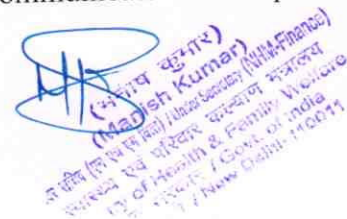 (मनीष कुमार)
(Manish Kumar)
सचिव (एन एच एम वित्त) / Under Secretary (NHM-Finance)
स्वास्थ्य एवं परिवार कल्याण मंत्रालय
of Health & Family Welfare
/ Govt. of India
/ New Delhi-110011